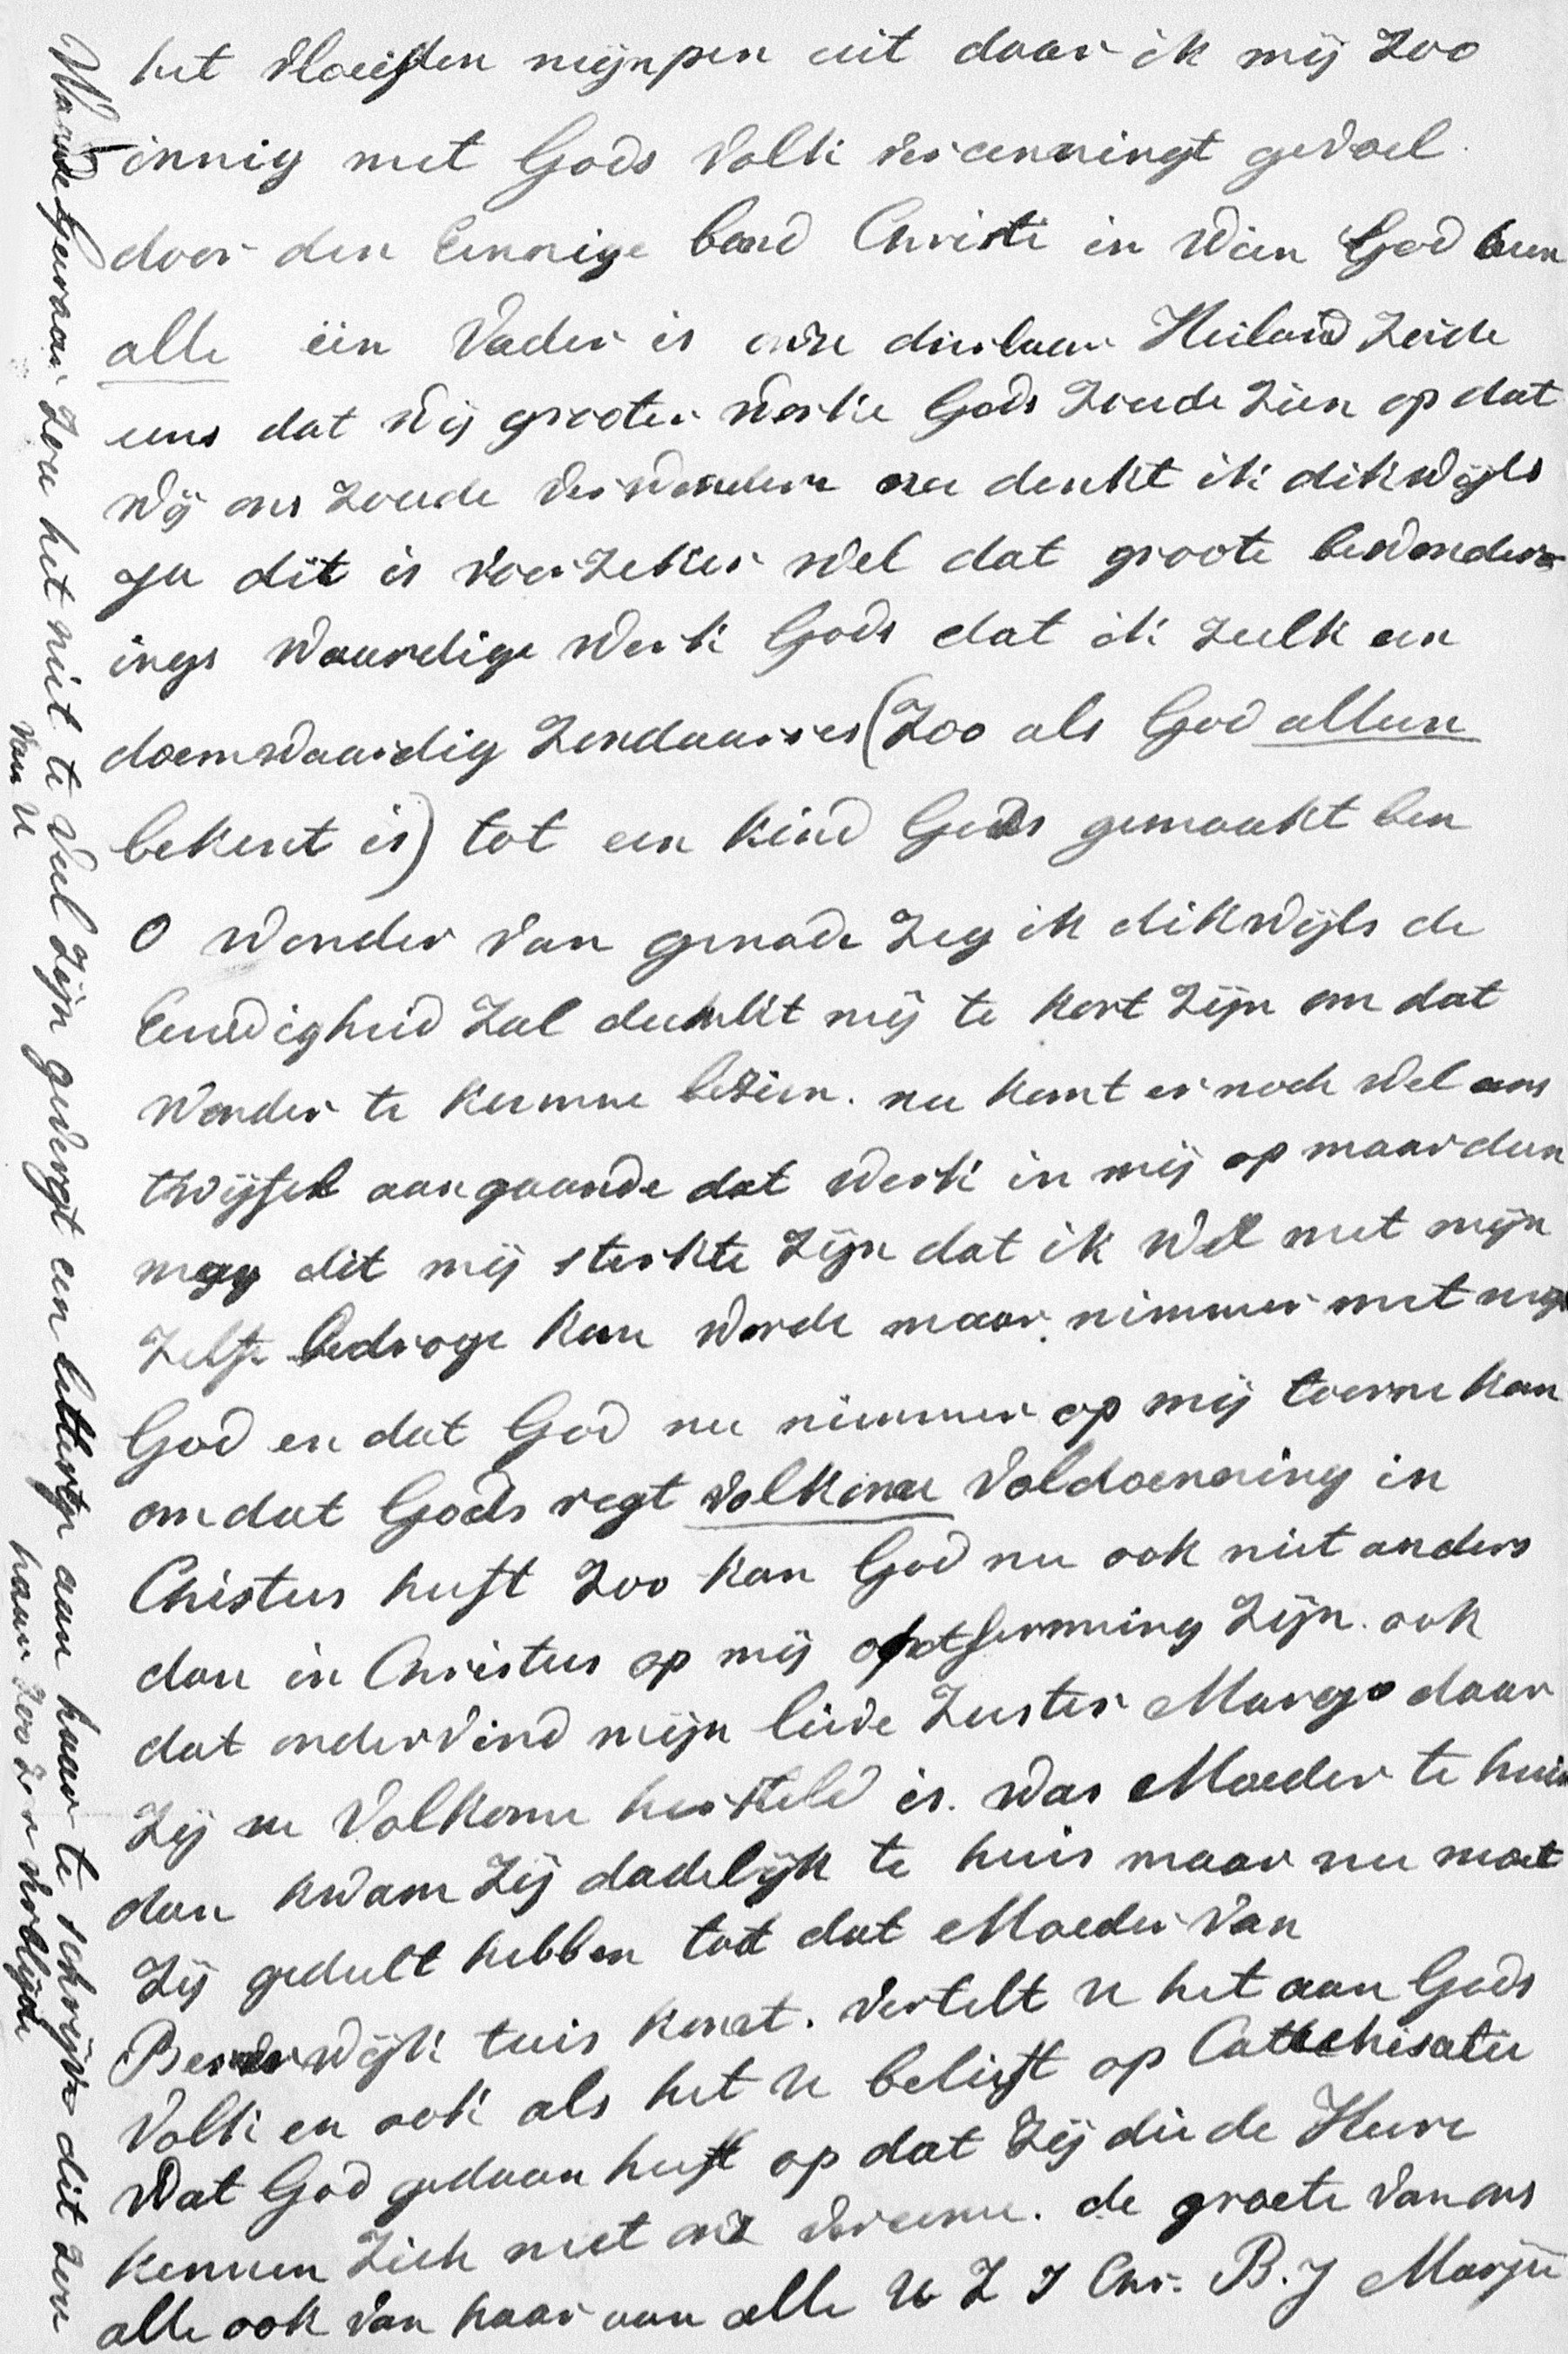 het vloeiden mijn pen uit daar ik mij zoo
innig met Gods volk vereenningt gevoel
door den Eennige band Christi in wien God hun
alle een Vader is onze dierbaar Heiland zeide
uns dat wij grooter werke Gods zoude zien op dat
wij ons zoude verwondere nu denkt ik dikwijls
ja dit is voorzeker wel dat groote bewonder-
ings waardige werk Gods dat ik zulk een
doemwaardig zondaarres (zoo als God alleen
bekent is) tot een kind Gods gemaakt ben
O wonder van genade zeg ik dikwijls de
Eeuwigheid zal denkt mij te kort zijn om dat
wonder te kunne bezien. nu komt er noch wel eens
twijfel aangaande dat werk in mij op maar dan
mag dit mij sterkte zijn dat ik wel met mijn
zelfe bedroge kan worde maar nimmer met mijn
God en dat God nu nimmer op mij toorne kan
omdat Gods regt volkome voldoenning in
Chistus heeft zoo kan God nu ook niet anders
dan in Christus op mij ontferming zijn. ook
dat ondervind mijn lieve zuster Margo daar
zij nu volkome hersteld is. was Moeder te huis
dan kwam zij dadelijk te huis maar nu moet
zij gedult hebben tot dat Moeder van
Beverwijk tuis komt. vertelt u het aan Gods
volk en ook als het u belieft op Cattechisatie
wat God gedaan heeft op dat zij die de Heere
kennen zich met ons vereene. de groete van ons
alle ook van haar aan alle U Z I Chr. B. J Marjii
Waarde Leeraar zou het niet te veel zijn gevergt een lettertje aan haar te schrijve dit zou
van U haar zoo zeer verblijde